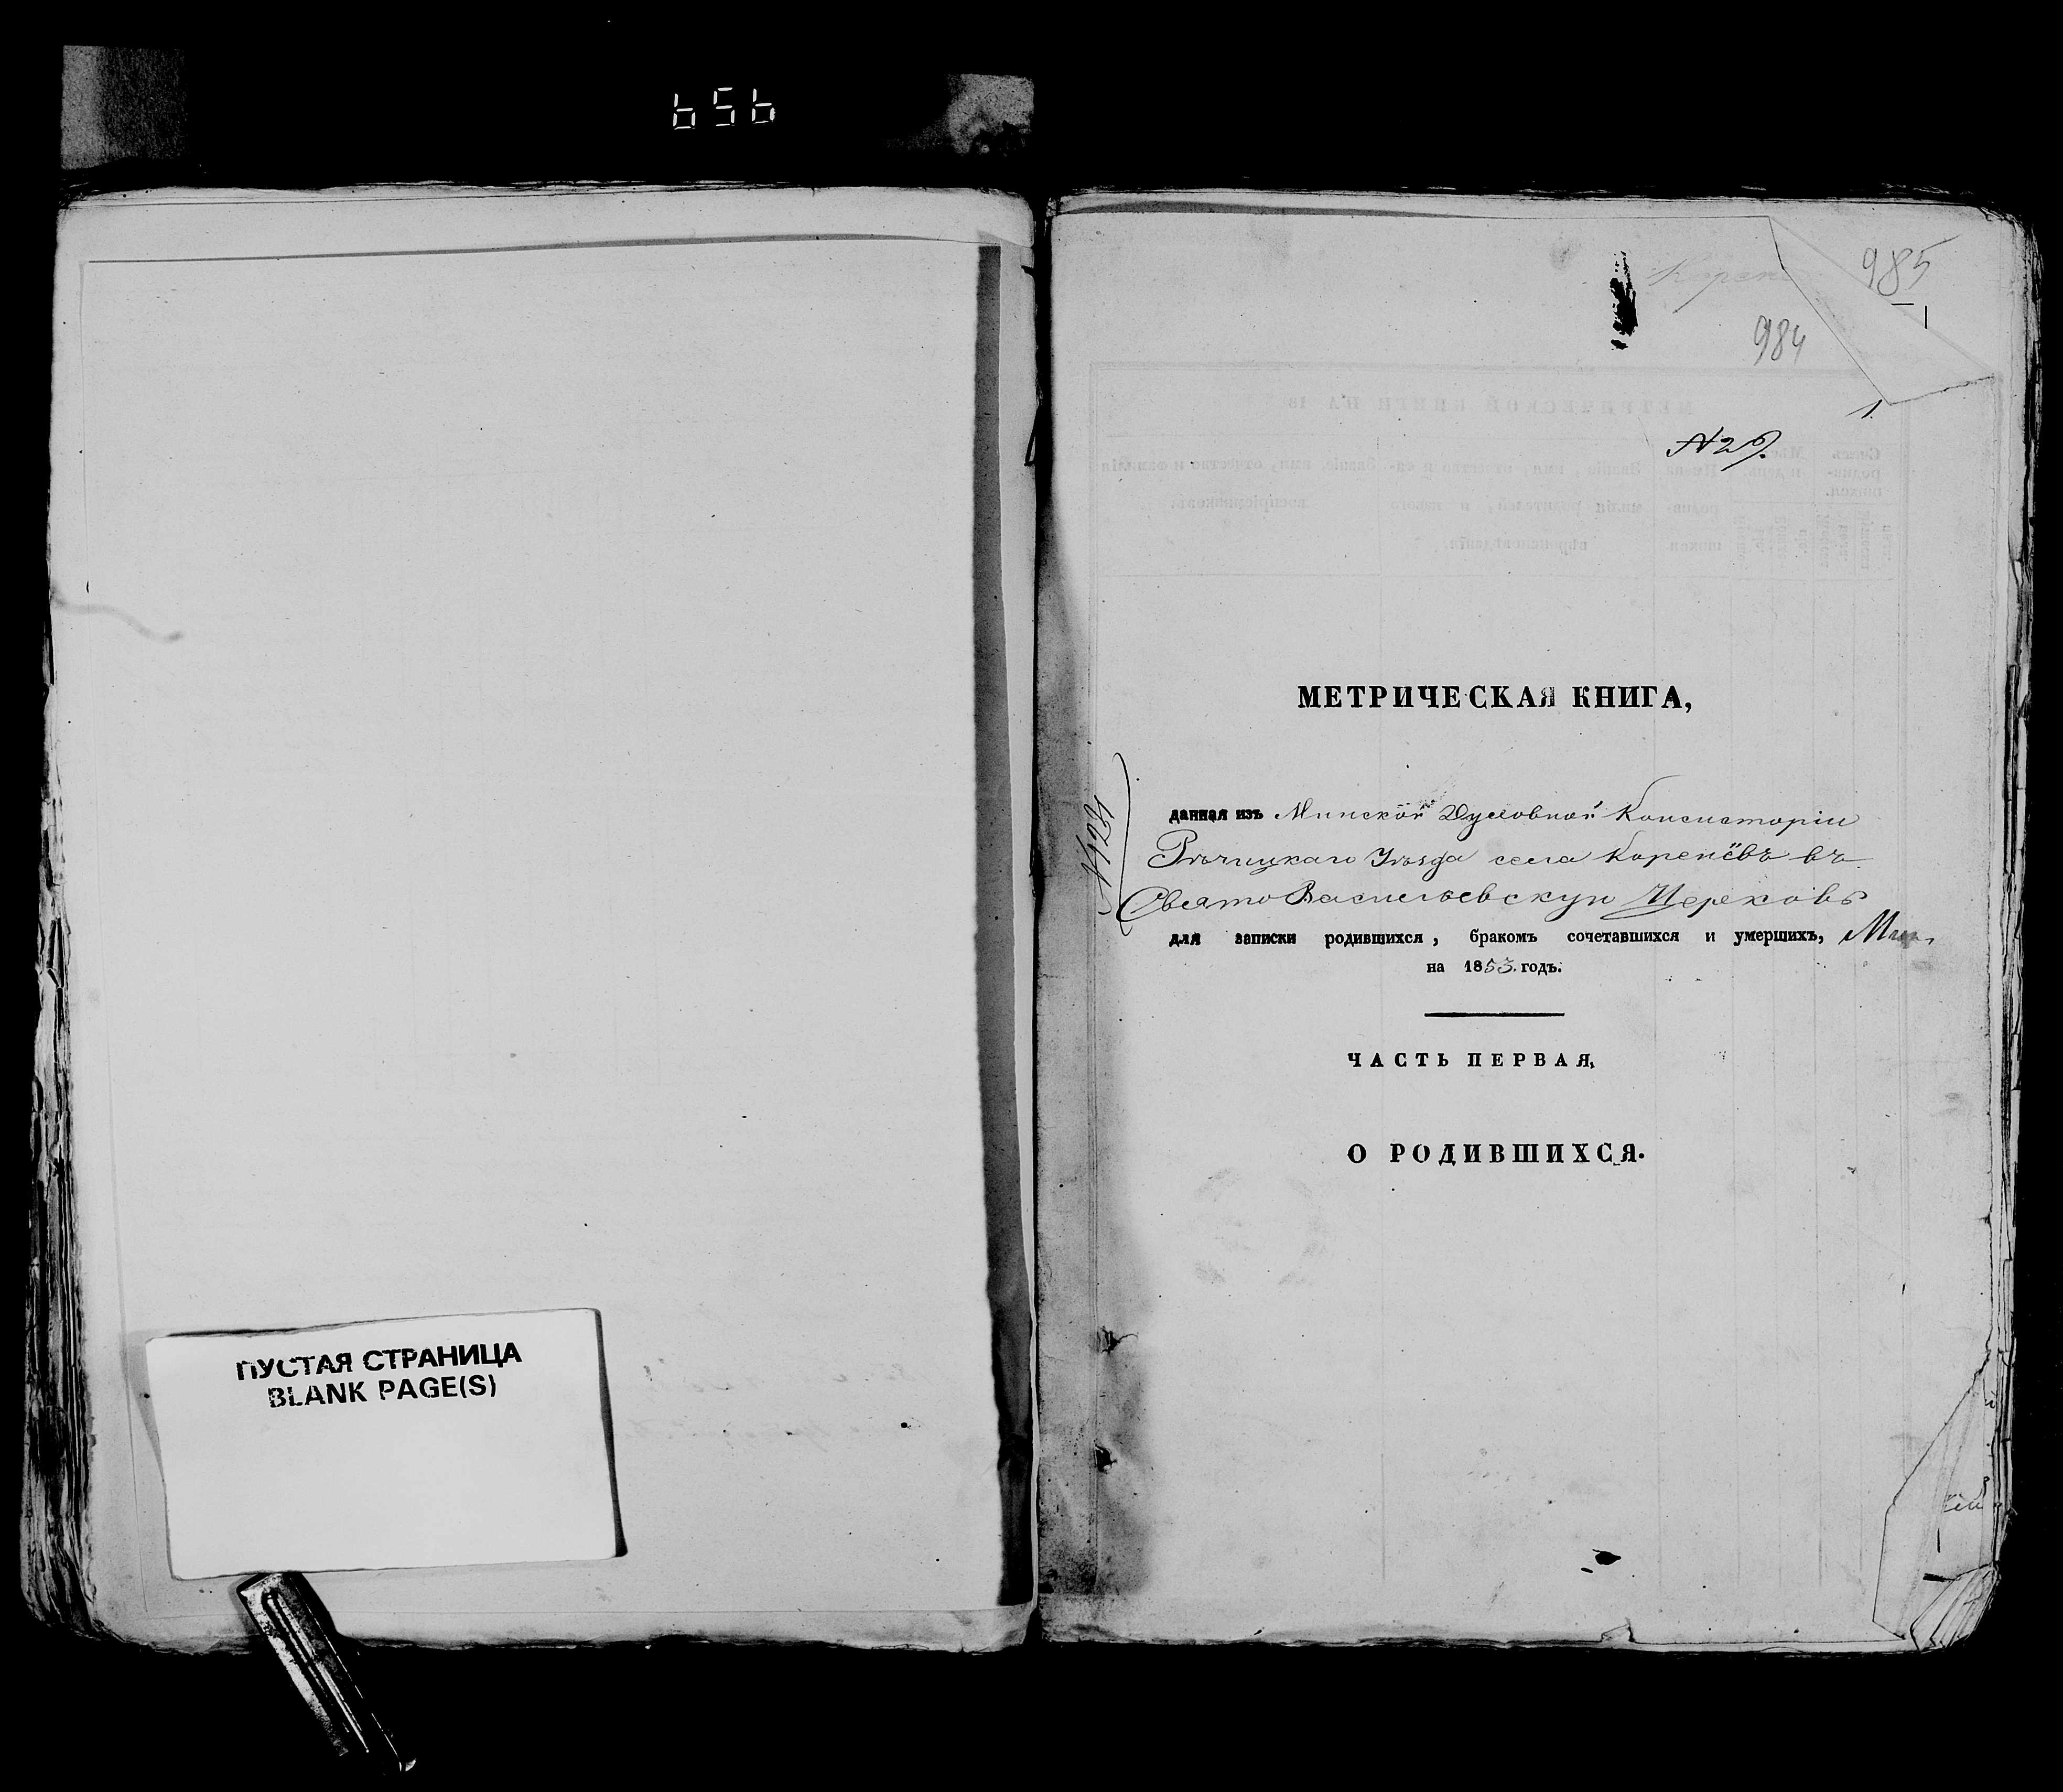 654
ПУСТАЯ СТРАНИЦА
BLANK PAGE(S)
985
984
1.
№ 29.
МЕТРИЧЕСКАЯ КНИГА,
данная изъ Минской Духовной Консисторіи
Рѣчицкаго Уѣзда села Коренёвъ въ
Свято Васильевскую Церковь
для записки родившихся, бракомъ сочетавшихся и умершихъ,
на 1853. годъ.
ЧАСТЬ ПЕРВАЯ,
О РОДИВШИХСЯ.